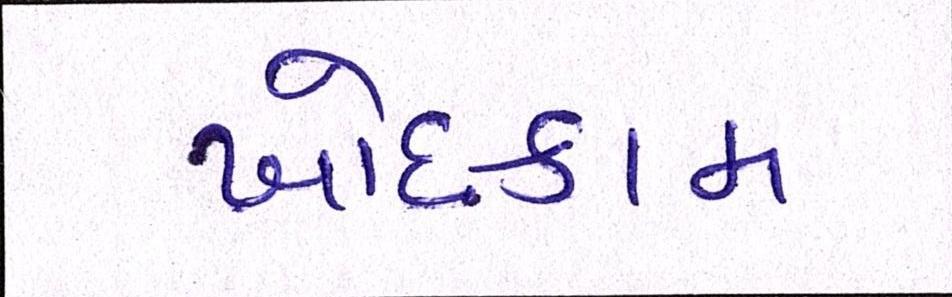 ખોદકામ